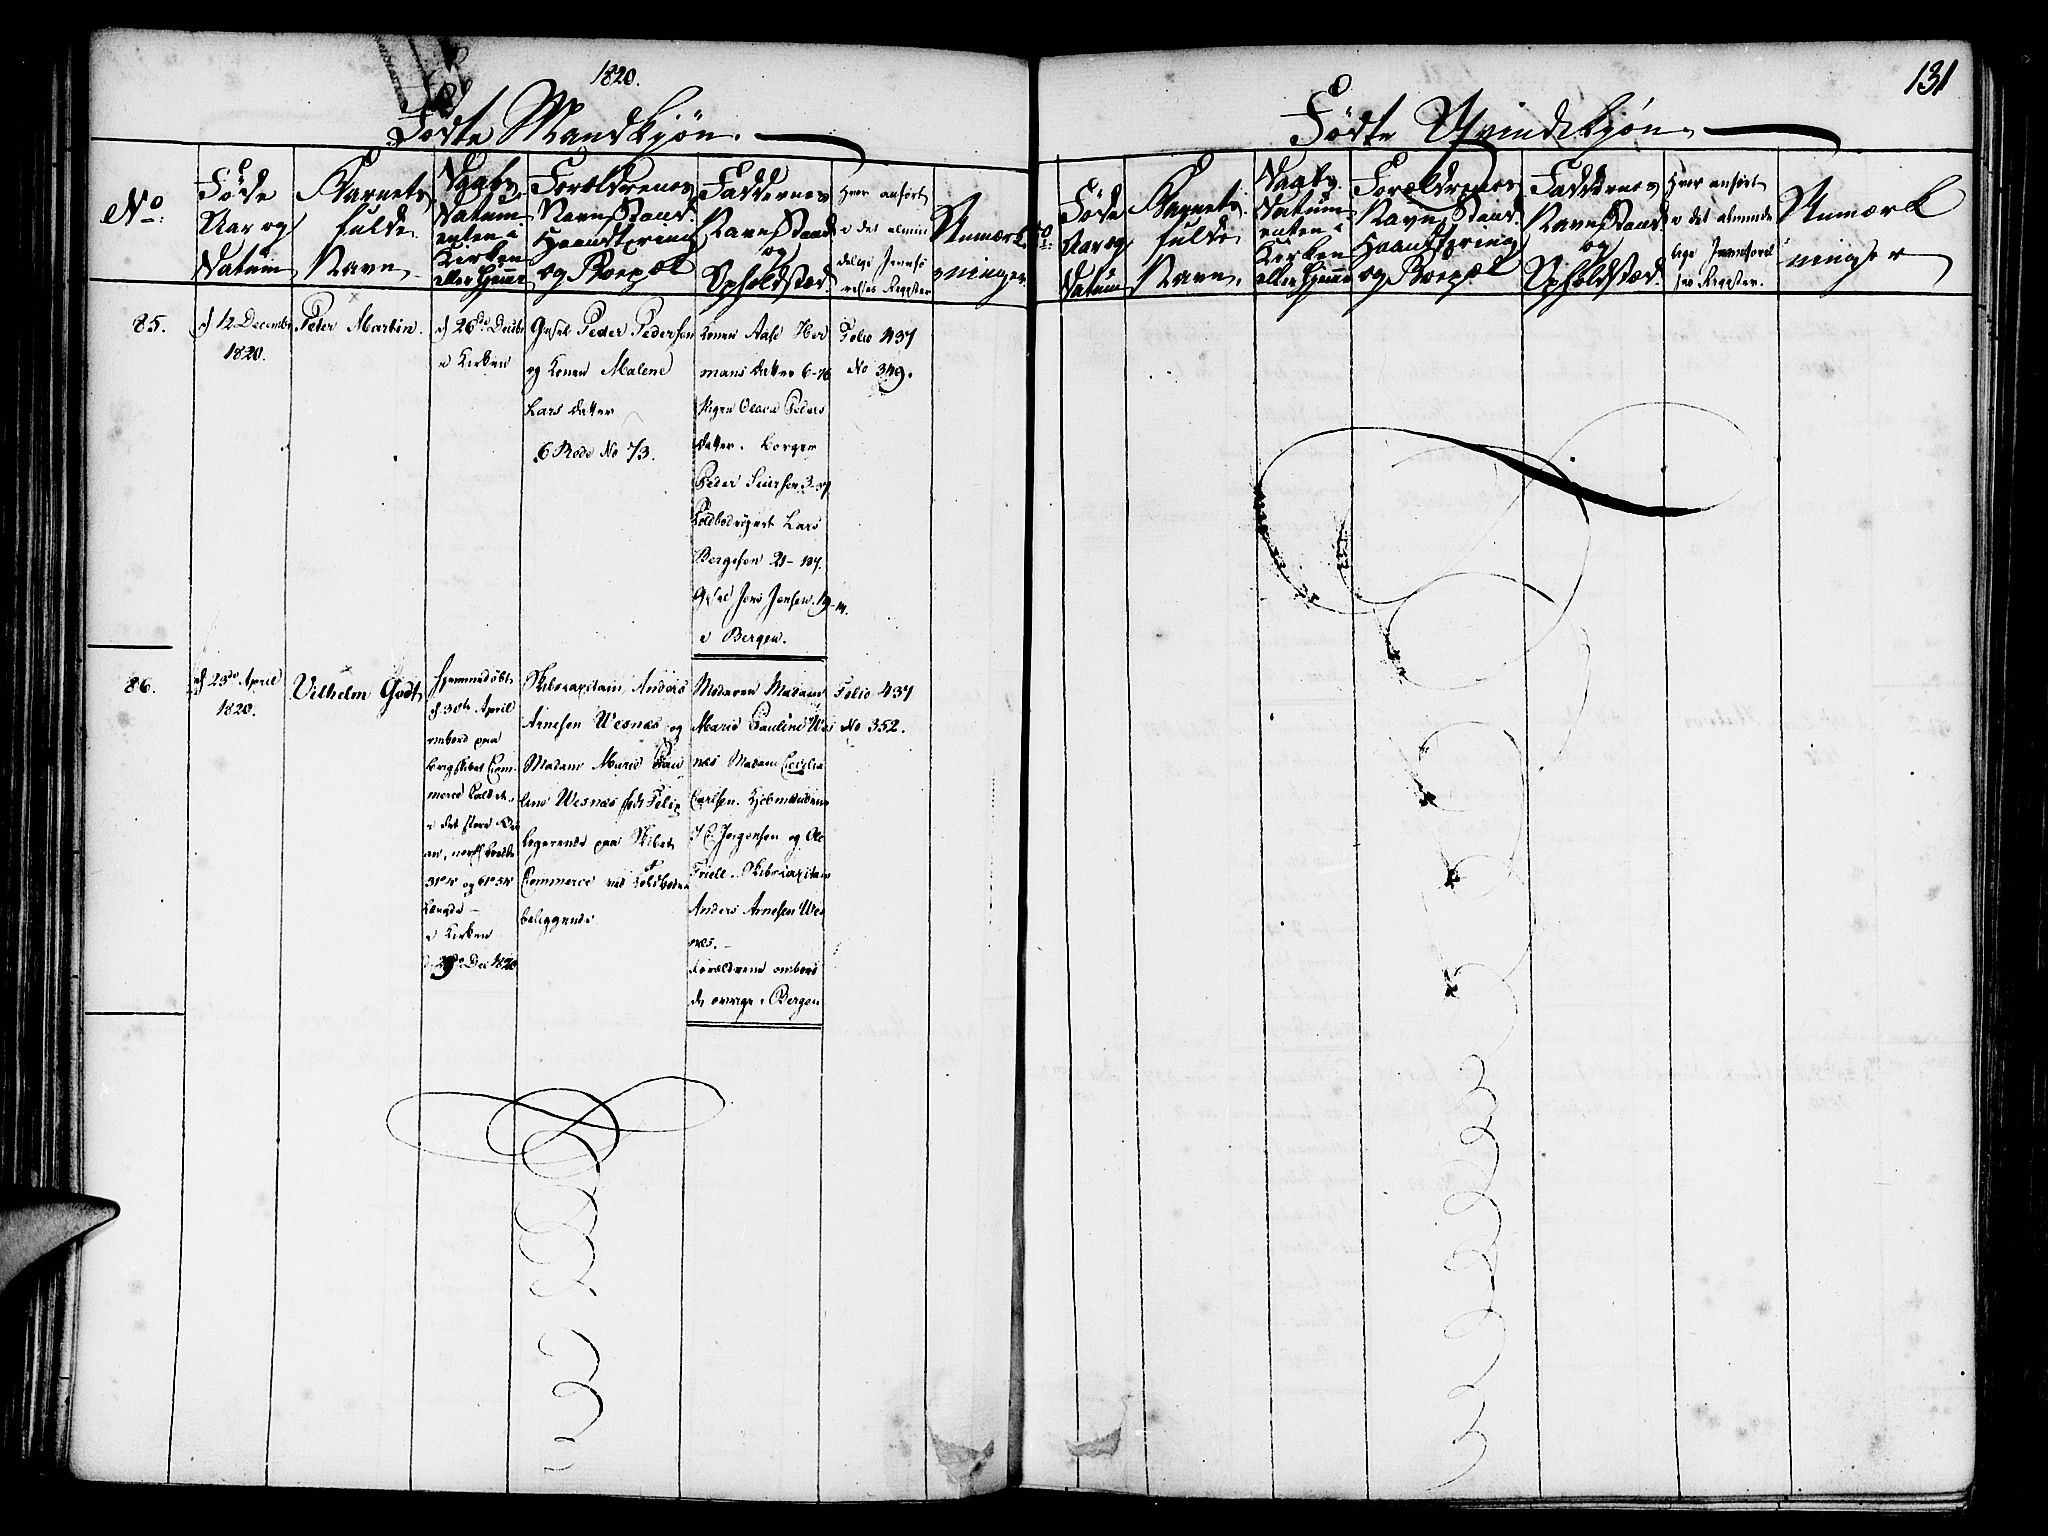 1820.
Fødte Mandkjøn.
No:
Føde
Aar og
Datum
Barnets
fulde
Navn
Daabs
Datum
enten i
Kirken
eller hjemme
Forældrenes
Navn Stand
Haandtering
og Boepæl
Faddernes
Navn Stand
og
Opholdsted.
Hvor anført
i det almin
delige Jevnfø
relses Register
Anmærk
ninger
85.
d 12 Decembr
1820.
Peter Martin.
d 26de Decbr
i Kirken
Peder Pedersen
og Konen Malene
Lars datter
6 Rode No 73.
Konen Aase Her
mans datter 6-16
Pigen Olava Peders
datter. Borger
Peder Seversen 3-
Toldbod Lars
Bergesen 21-
Jens Jensen 19-
i Bergen.
Folio 437
No 349.
86.
d 23de April
1820.
Vilhelm Godt
hjemmedøbt
d 30te April
ombord paa
Brigskibet Com-
merce kaldet,
i det store Oce
an, nordl Brede
31° og 61°
Længde
i Kirken
d 29de Dec 1820
Skibscapitain Anders
Arnesen Wesnæs og
Madame Marie Pau
line Wesnæs født
logerende paa Skibet
Commerce ved Toldboden
beliggende
Moderen Madame
Marie Pauline Wes
næs Madam Cecilia
Carlsen. Kjøbmændene
Jørgensen og Ole
Friele. Skibscapitain
Anders Arnesen Wes
næs.
Forældrene ombord
de øvrige i Bergen
Folio 437
No 352.
131
Fødte Qvindekjøn.
Føde
Aar og
Datum
Barnets
fulde
Navn.
Daabs
Datum
enten i
Kirken
eller hjemme
Forældrenes
Navn Stand
Haandtering
og Boepæl
Faddernes
Navn Stand
og
Opholdsted.
Hvor anført
i det alminde
lige Jevnførel
ses Register.
Anmærk
ninger